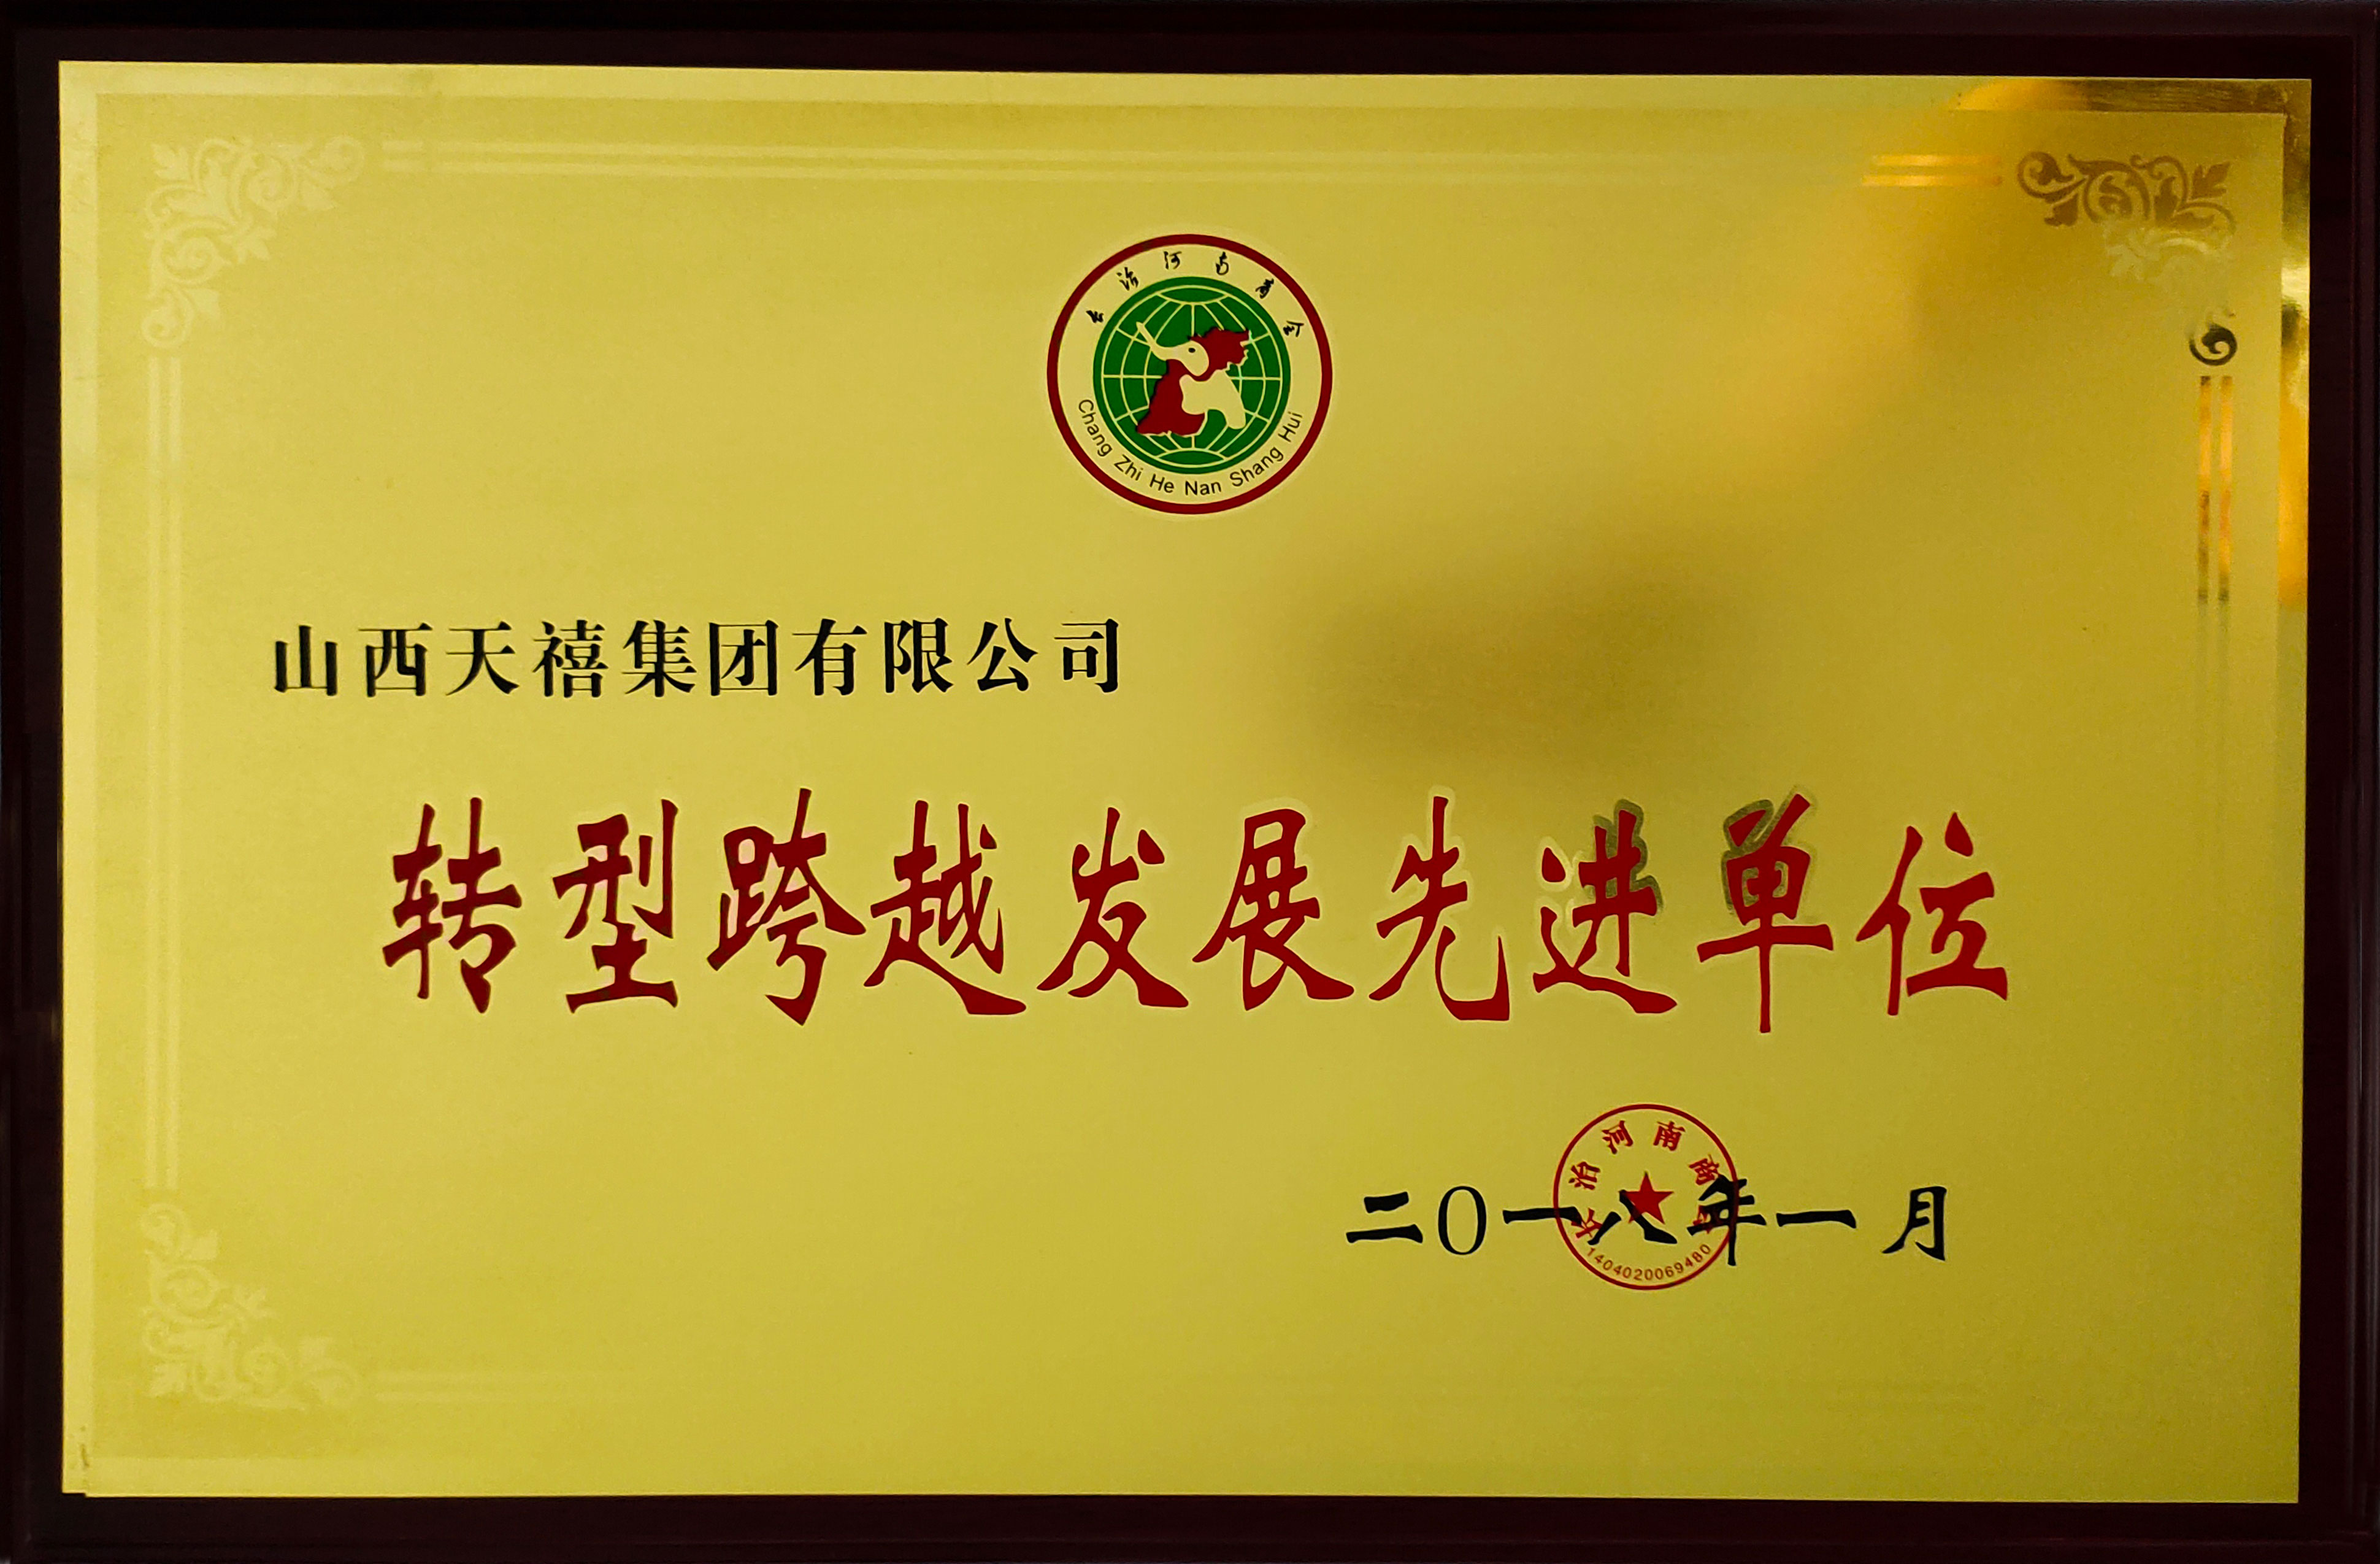 长治河南商会
Chang Zhi He Nan Shang Hui
山西天禧集团有限公司
转型跨越发展先进单位
长治河南商会
二〇一八年一月
1404020069480